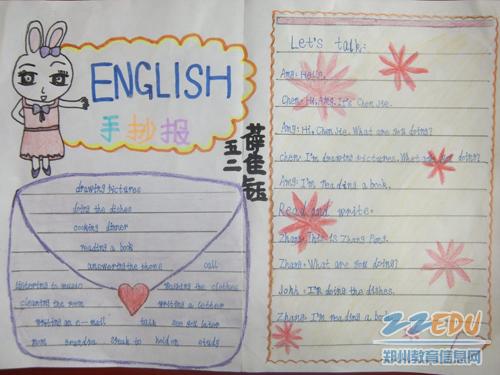 ENGLISH
手抄报
五二
薛佳钰
drawing pictures
doing the dishes
cooking dinner
reading a book
answering the phone call
listening to music washing the clothes
cleaning the room writing a letter
writing an e-mail talk see you later
mom grandpa speak to hold on study
Let's talk:
Amy: Hello.
Chen: Hi, Amy. It's Chen Jie.
Amy: Hi, Chen Jie. What are you doing?
Chen: I'm drawing pictures. What are you doing?
Amy: I'm reading a book.
Read and write.
Zhang: This is Zhang Peng.
Zhang: What are you doing?
John: I'm doing the dishes.
Zhang: I'm reading a book.
ZZEDU
郑州教育信息网